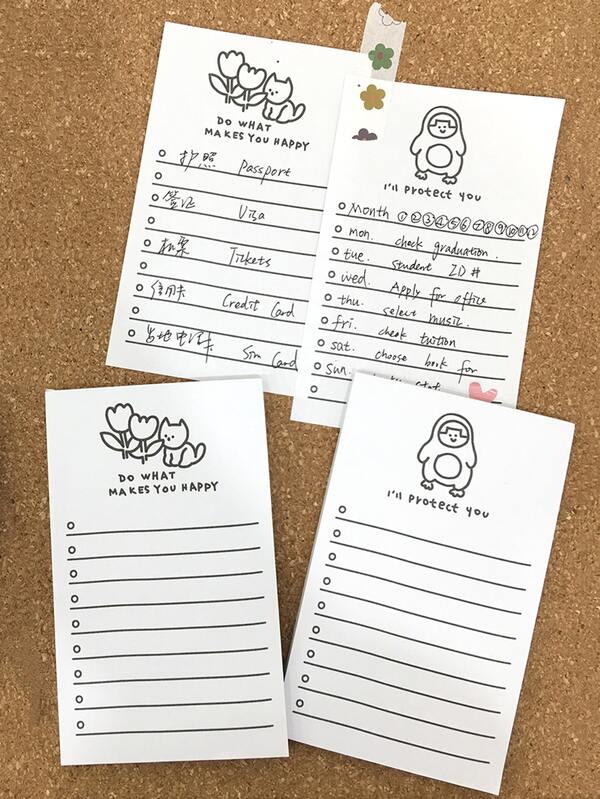 DO WHAT
MAKES YOU HAPPY
护照 Passport
签证 Visa
机票 Tickets
信用卡 Credit Card
当地电话卡 Sim Card
I'll PROTECT YOU
Month ① ② ③ ④ ⑤ ⑥ ⑦ ⑧ ⑨ ⑩ ⑪ ⑫
mon. check graduation.
tue. student ID #
wed. Apply for office
thu. select music.
fri. cheak tuition
sat. choose book for
sun.
DO WHAT
MAKES YOU HAPPY
I'll PROTECT YOU